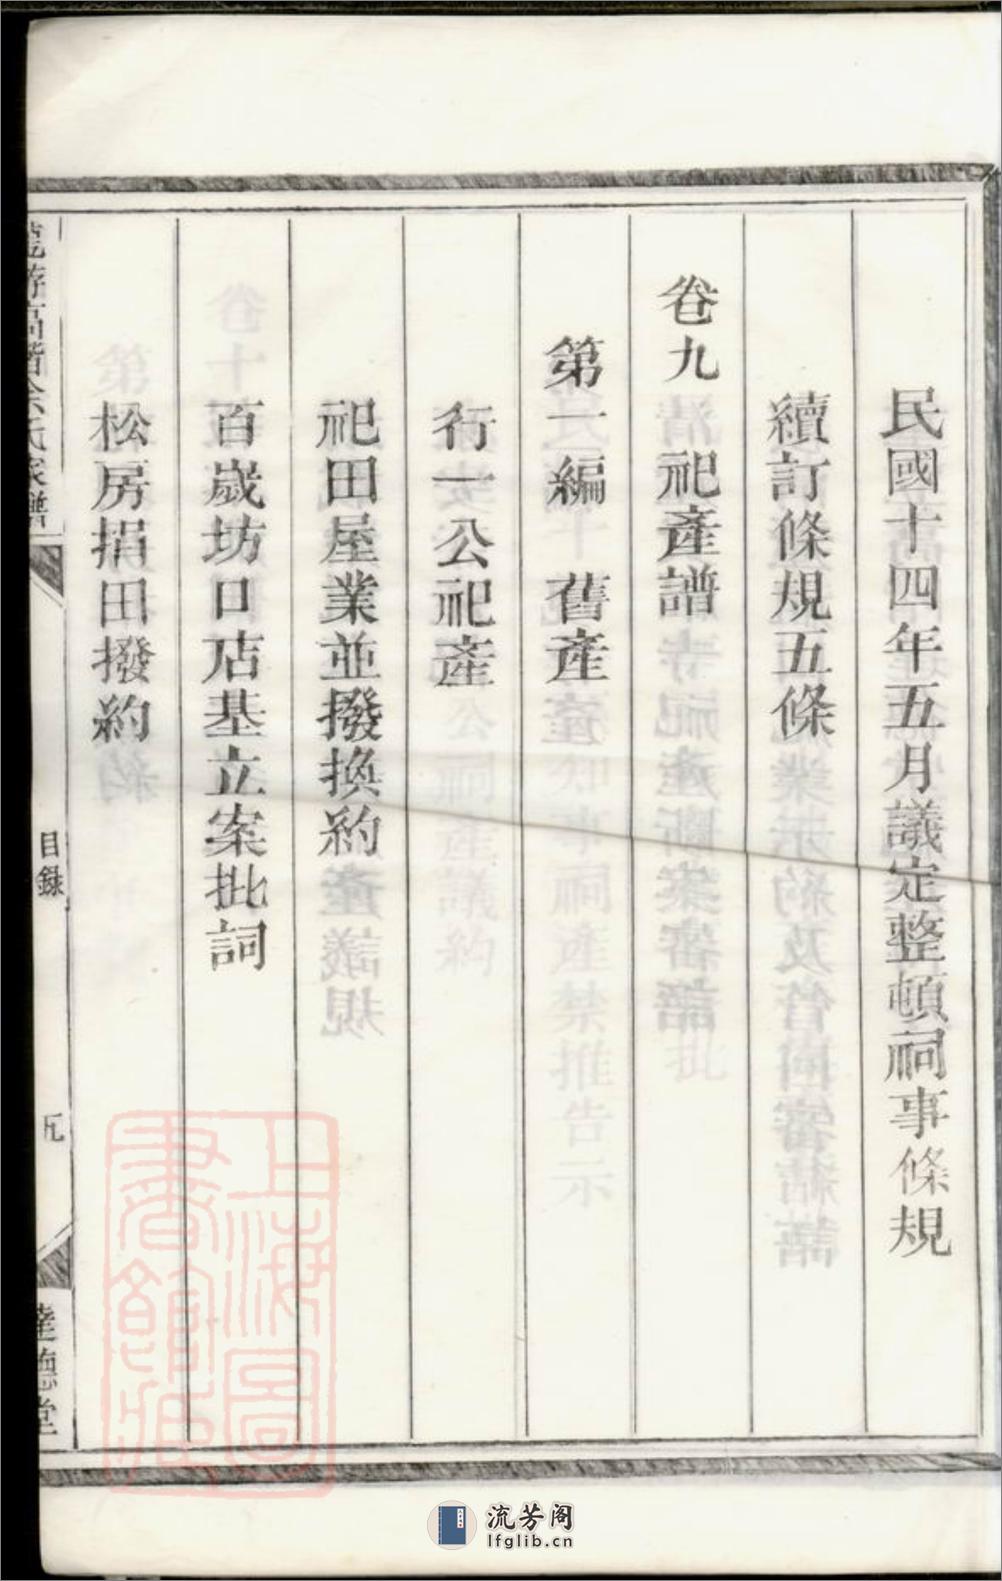 民國十四年五月議定整頓祠事條規
續訂條規五條
卷九 祀產譜
第一編 舊產
行一公祀產
祀田屋業並撥換約
百歲坊日店基立案批詞
松房捐田撥約
龍游高階余氏家譜
目錄
九
達德堂
上海圖書館藏
流芳阁
lfglib.cn